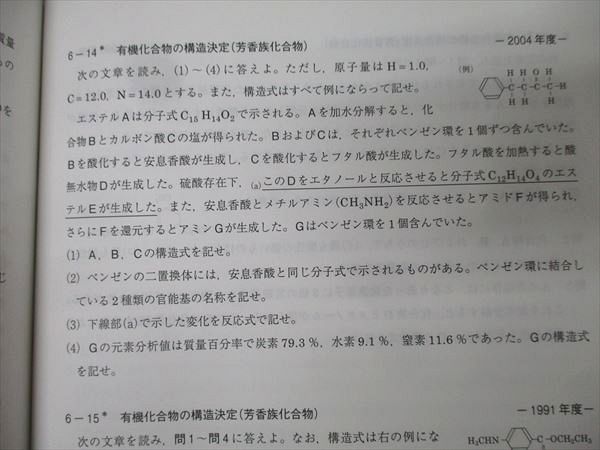 質量
6−14* 有機化合物の構造決定(芳香族化合物) −2004年度−
次の文章を読み,(1)〜(4)に答えよ。ただし,原子量は H=1.0,
C=12.0, N=14.0とする。また,構造式はすべて例にならって記せ。
(例)
H H O H
C-C-C-C-H
H H H
エステルAは分子式 C15H14O2で示される。Aを加水分解すると,化
合物Bとカルボン酸Cの塩が得られた。BおよびCは,それぞれベンゼン環を1個ずつ含んでいた。
Bを酸化すると安息香酸が生成し,Cを酸化するとフタル酸が生成した。フタル酸を加熱すると酸
無水物Dが生成した。硫酸存在下,(a)このDをエタノールと反応させると分子式C12H14O4のエス
テルEが生成した。また,安息香酸とメチルアミン(CH3NH2)を反応させるとアミドFが得られ,
さらにFを還元するとアミンGが生成した。Gはベンゼン環を1個含んでいた。
(1) A,B,Cの構造式を記せ。
(2) ベンゼンの二置換体には,安息香酸と同じ分子式で示されるものがある。ベンゼン環に結合し
ている2種類の官能基の名称を記せ。
(3) 下線部(a)で示した変化を反応式で記せ。
(4) Gの元素分析値は質量百分率で炭素79.3%,水素9.1%,窒素11.6%であった。Gの構造式
を記せ。
6−15* 有機化合物の構造決定(芳香族化合物) −1991年度−
次の文章を読み,問1〜問4に答えよ。なお,構造式は右の例にな
H3CHN- -C-OCH2CH3